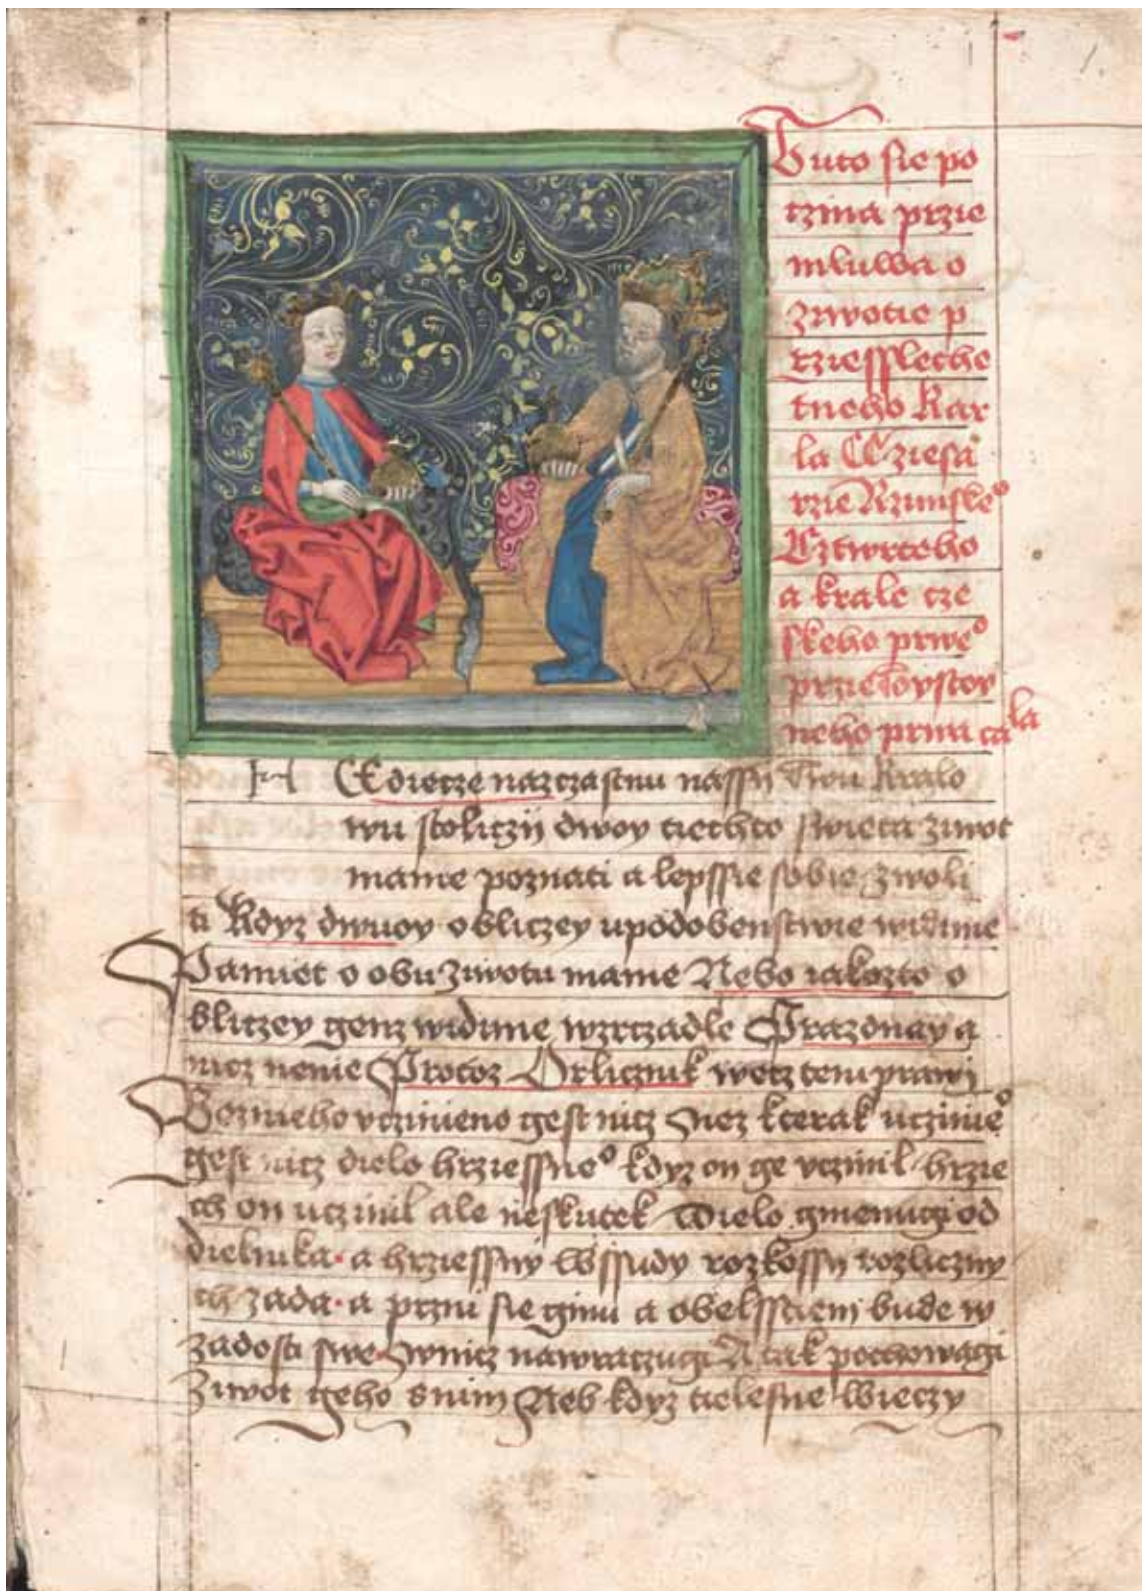 Tuto sie po
czina przie
mluwa o
ziwotie p
rziessleche
tneho Kar
la Cziesa
rzie Rzimskeo
Cztwrteho
a krale cze
skeho prweo
nasczastnu nassy
wu stoliczy dwoy tiechto swieta ziwot
mame poznati a lepssie sobie zwoli
ti Kdyz dwuoy obliczey upodobenstwie widime
Pamiet o obu ziwotu mame Nebo iakozto o
bliczey genz widime wzrczadle Prazdnay a
nicz nenie Protoz Orlicznik wecz tem prawi
Beznieho vczinieno gest nicz Nez kterak uczinieo
gest nicz dielo hrziessneo kdyz on ge vczinil hrzie
ch on uczinil ale neskutek Dielo gmenugi od
dielnika a hrziessny wssudy rozkossy rozliczny
ch zada a przni sie gimi a obelsstiem bude w
zadosti swe wnicz nawraczugi A tak pochowagi
ziwot geho snim Neb kdyz tielesne wieczy